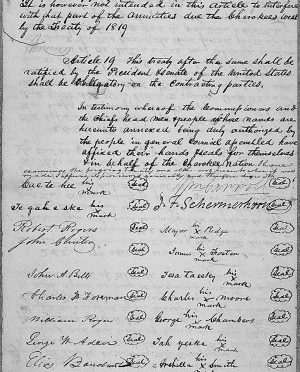 It is however not intended in this article to interfere
with that part of the annuities due the Cherokees west
by the Treaty of 1819
Article 19 This treaty after the same shall be
ratified by the President & Senate of the United States
shall be obligatory on the contracting parties.
In testimony whereof the Commissioners and
the Chiefs head men & people whose names are
hereunto annexed being duly authorized by
the people in general Council assembled have
affixed their hands & seals for themselves
& in behalf of the Cherokee Nation
Cae te hee his x mark Seal
Te gah e ske his x mark Seal J. F. Schermerhorn Seal
Robert Rogers Seal Major his x mark Ridge Seal
John Gunter Seal
James his x mark Foster Seal
John A. Bell Seal Tesa ta esky his x mark Seal
Charles F Foreman Seal Charles his x mark Moore Seal
William Rogers Seal George his x mark Chambers Seal
George W. Adair Seal Tah yeske his x mark Seal
Elias Boudinot Seal Archilla his x mark Smith Seal